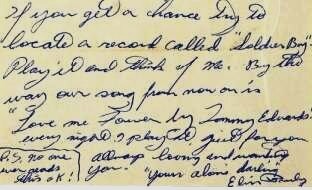 If you get a chance try to
locate a record called "Soldier Boy".
Play it and think of me. By the
way our song from now on is
"Love me Forever by Tommy Edwards"
every night I played it just for you
always loving and wanting
you. "yours alone" darling
Elvis Presley
P.S. no one
ever reads
this O.K.!